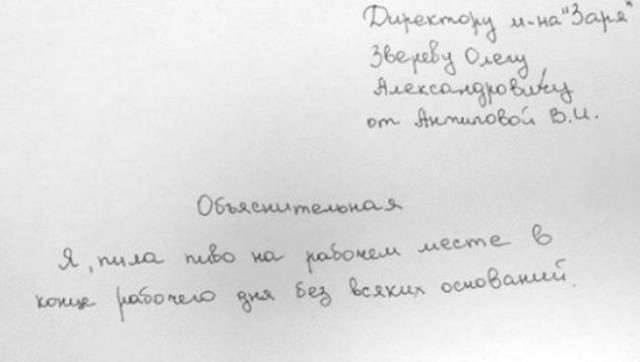 Директору м-на "Заря"
Звереву Олегу
Александровичу
от Антиповой В.И.
Объяснительная
Я, пила пиво на рабочем месте в
конце рабочего дня без всяких оснований.